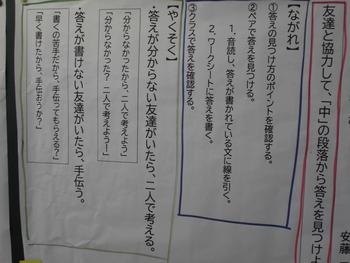 友達と協力して、「中」の段落から答えを見つけよ
安藤
【ながれ】
①答えの見つけ方のポイントを確認する。
②ペアで答えを見つける。
1、音読し、答えが書かれている文に線を引く。
2、ワークシートに答えを書く。
③クラスで答えを確認する。
【やくそく】
・答えが分からない友達がいたら、二人で考える。
「分からなかったから、二人で考えよう」
「分からなかった?二人で考えよう!」
・答えが書けない友達がいたら、手伝う。
「書くの苦手だから、手伝ってもらえる?」
「早く書けたから、手伝おうか?」